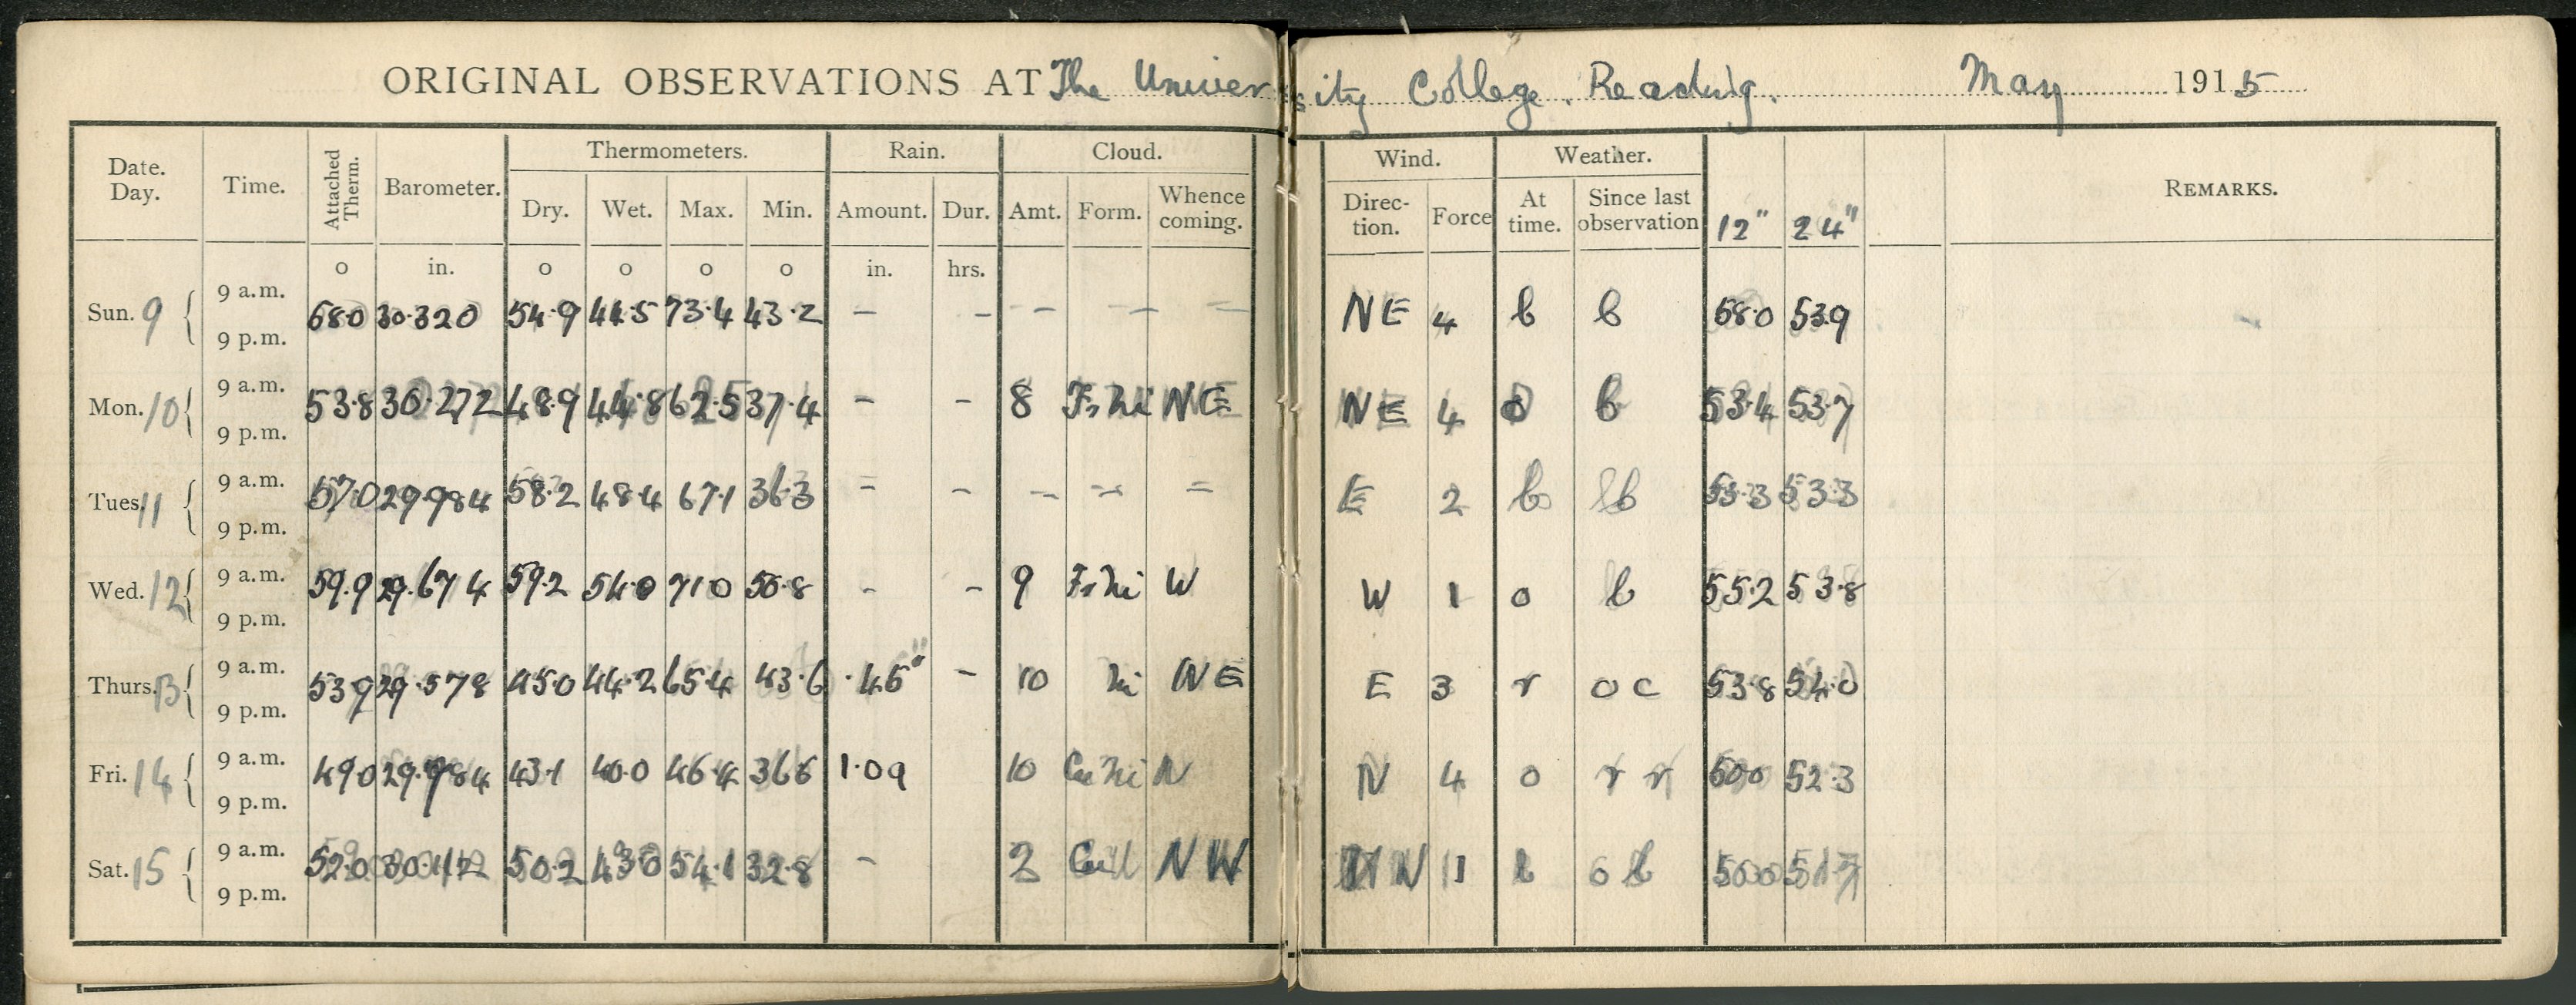 ORIGINAL OBSERVATIONS AT The University College. Reading. May 1915
Date. Day. Time. Attached Therm. Barometer. Thermometers. Rain. Cloud. Wind. Weather. 12" 24" REMARKS.
Dry. Wet. Max. Min. Amount. Dur. Amt. Form. Whence coming. Direc- tion. Force At time. Since last observation
o in. o o o o in. hrs.
Sun. 9 { 9 a.m. 68.0 30.320 54.9 44.5 73.4 43.2 - - - - - NE 4 b b 58.0 53.9
9 p.m.
Mon. 10 { 9 a.m. 53.8 30.272 48.9 44.8 62.5 37.4 - - 8 NE NE 4 o b 53.4 53.7
9 p.m.
Tues. 11 { 9 a.m. 57.0 29.984 58.2 48.4 67.1 36.3 - - - - - E 2 b b 53.3 53.3
9 p.m.
Wed. 12 { 9 a.m. 59.9 29.674 59.2 54.0 71.0 50.8 - - 9 W W 1 o b 55.2 53.8
9 p.m.
Thurs. 13 { 9 a.m. 53.9 29.578 45.0 44.2 65.4 43.6 .45" - 10 Ni NE E 3 r o c 53.8 54.0
9 p.m.
Fri. 14 { 9 a.m. 49.0 29.984 43.1 40.0 46.4 36.6 1.09 10 Cu Ni N N 4 o r r 50.0 52.3
9 p.m.
Sat. 15 { 9 a.m. 52.0 30.112 50.2 43.0 54.1 32.8 - 2 NW N 1 b o b 50.0 51.7
9 p.m.